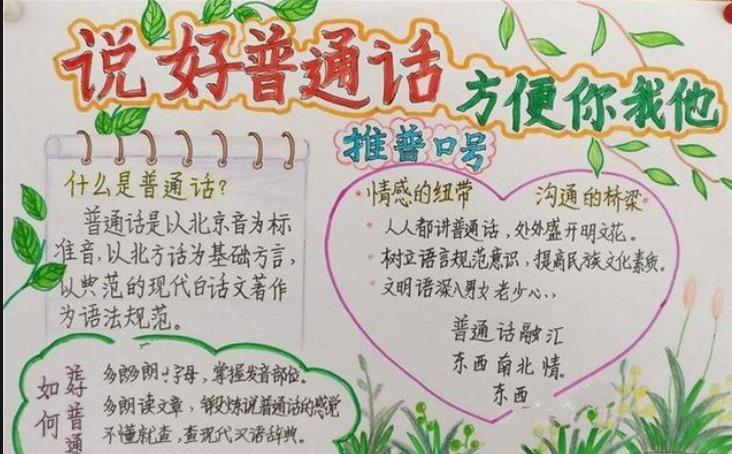 说好普通话
方便你我他
推普口号
什么是普通话?
普通话是以北京音为标
准音,以北方话为基础方言,
以典范的现代白话文著作
为语法规范。
情感的纽带 沟通的桥梁
人人都讲普通话,处处盛开明文花。
树立语言规范意识,提高民族文化素质。
文明语深入男女老少心、,
普通话融汇
东西南北情。
东西
如何
好普通
多朗 字母,掌握发音部位。
多朗读文章,锻炼说普通话的感觉
不懂就查,查现代汉语辞典。